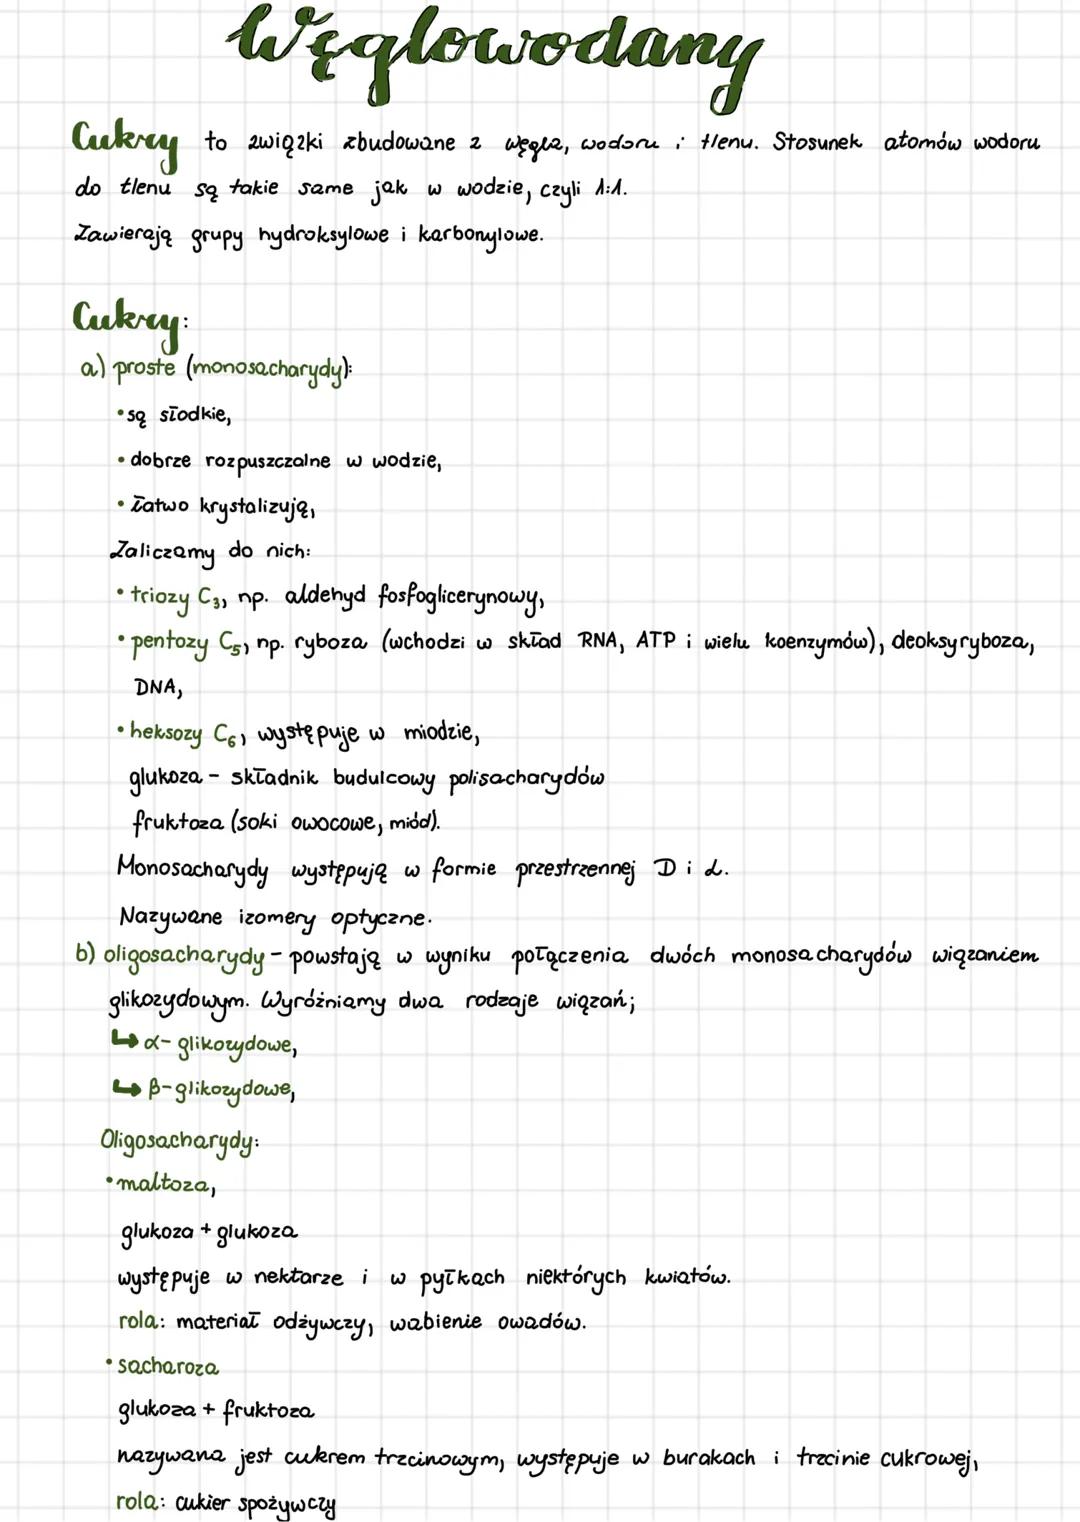 Węglowodany
Cukry to związki zbudowane z węgla, wodoru i tlenu. Stosunek atomów wodoru
do tlenu są takie same jak w wodzie, czyli 1:1.
Zawierają grupy hydroksylowe i karbonylowe.
Cukry:
a) proste (monosacharydy):
• są słodkie,
• dobrze rozpuszczalne w wodzie,
• łatwo krystalizują,
Zaliczamy do nich:
• triozy C₃, np. aldehyd fosfoglicerynowy,
• pentozy C₅, np. ryboza (wchodzi w skład RNA, ATP i wielu koenzymów), deoksyryboza,
DNA,
• heksozy C₆, występuje w miodzie,
glukoza - składnik budulcowy polisacharydów
fruktoza (soki owocowe, miód).
Monosacharydy występują w formie przestrzennej D i L.
Nazywane izomery optyczne.
b) oligosacharydy - powstają w wyniku połączenia dwóch monosacharydów wiązaniem
glikozydowym. Wyróżniamy dwa rodzaje wiązań;
↳ α- glikozydowe,
↳ β-glikozydowe,
Oligosacharydy:
• maltoza,
glukoza + glukoza
występuje w nektarze i w pyłkach niektórych kwiatów.
rola: materiał odżywczy, wabienie owadów.
• sacharoza
glukoza + fruktoza
nazywana jest cukrem trzcinowym, występuje w burakach i trzcinie cukrowej,
rola: cukier spożywczy